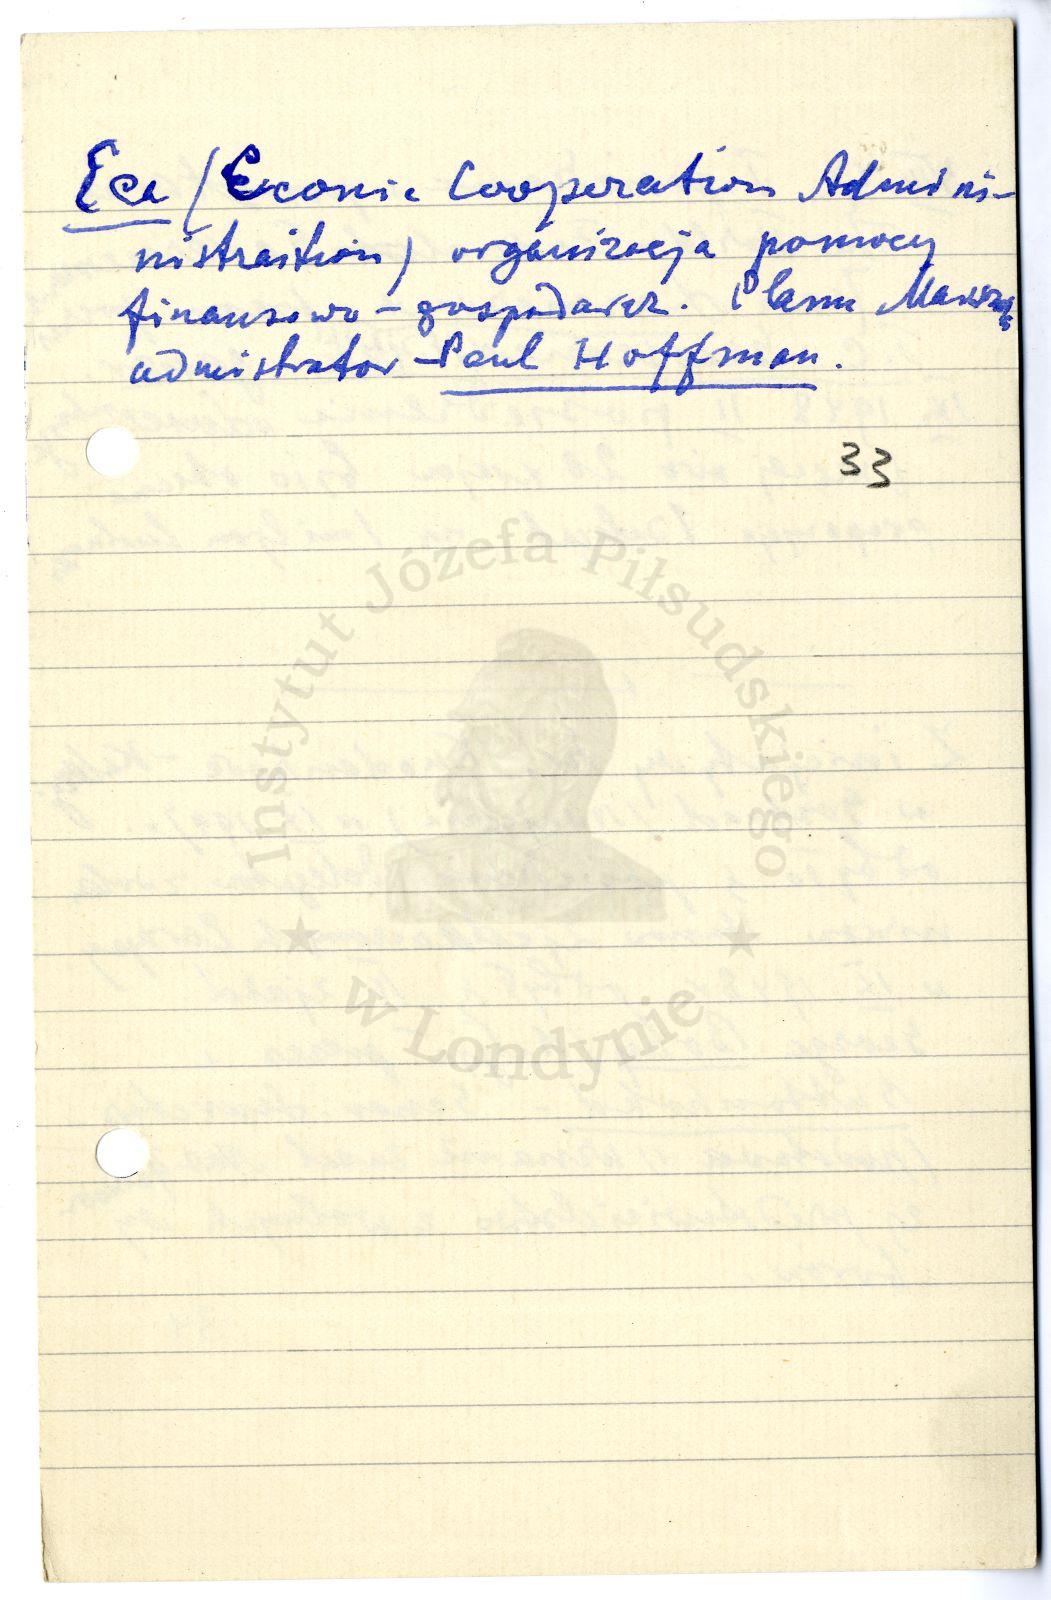 Eca (Econic Cooperation Admini-
nistraition) organizacja pomocy
finansowo-gospodarcz. Planu
admistrator - Paul Hoffman.
33
Instytut Józefa Piłsudskiego
w Londynie